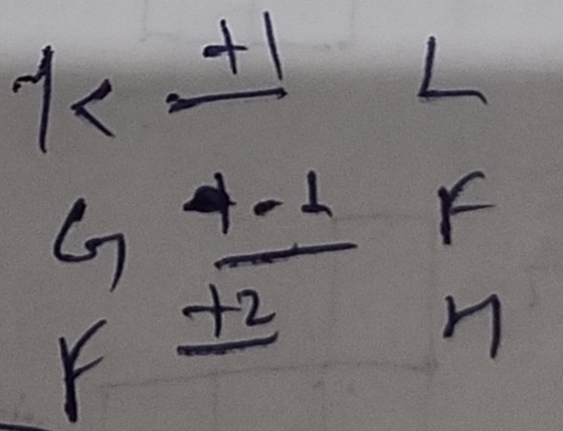 K +1 L
G - 1 F
F +2 H